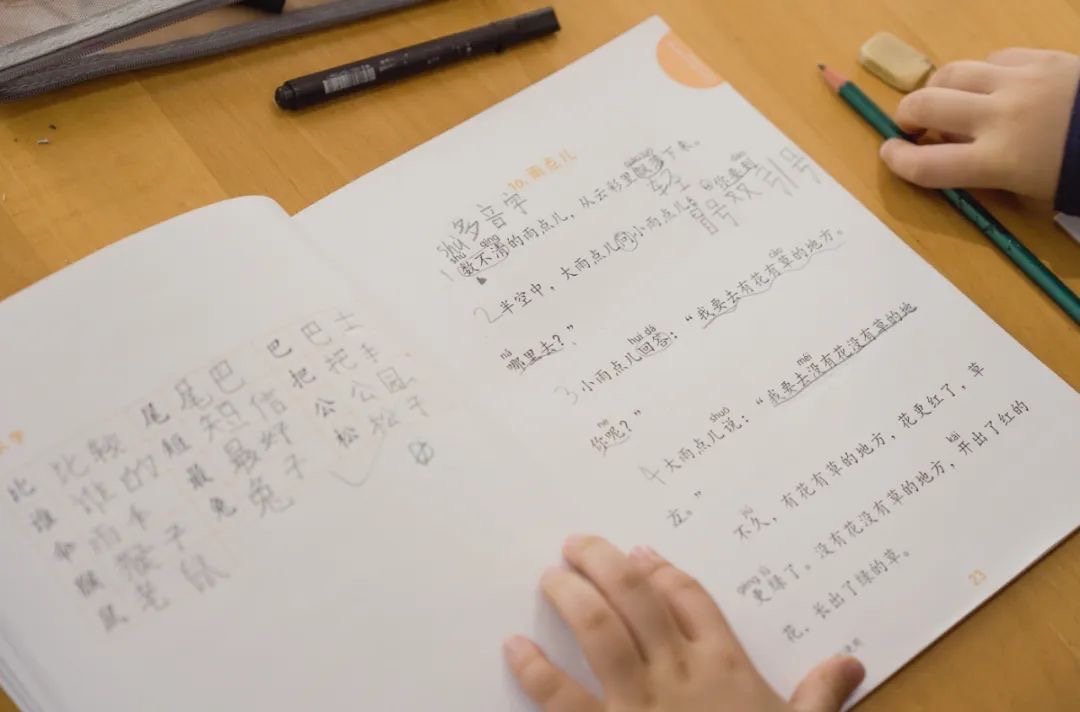 比 比较
谁 谁的
伞 雨伞
猴 猴子
鼠 笔鼠
尾 尾巴
短 短信
最 最好
兔 兔子
巴 巴士
把 把手
公 公园
松 松子
10.雨点儿
多音字
shǔ
shǔ qīng
1 数不清的雨点儿，从云彩里飘落下来。
轻
冒号 双引号
2 半空中，大雨点儿问小雨点儿：“你要到
nǎ
哪里去？”
huí dá cǎo
3 小雨点儿回答：“我要去有花有草的地方。
ne
你呢？”
shuō méi
4 大雨点儿说：“我要去没有花没有草的地
方。”
jiǔ
不久，有花有草的地方，花更红了，草
gèng lǜ kāi
更绿了。没有花没有草的地方，开出了红的
花，长出了绿的草。
23